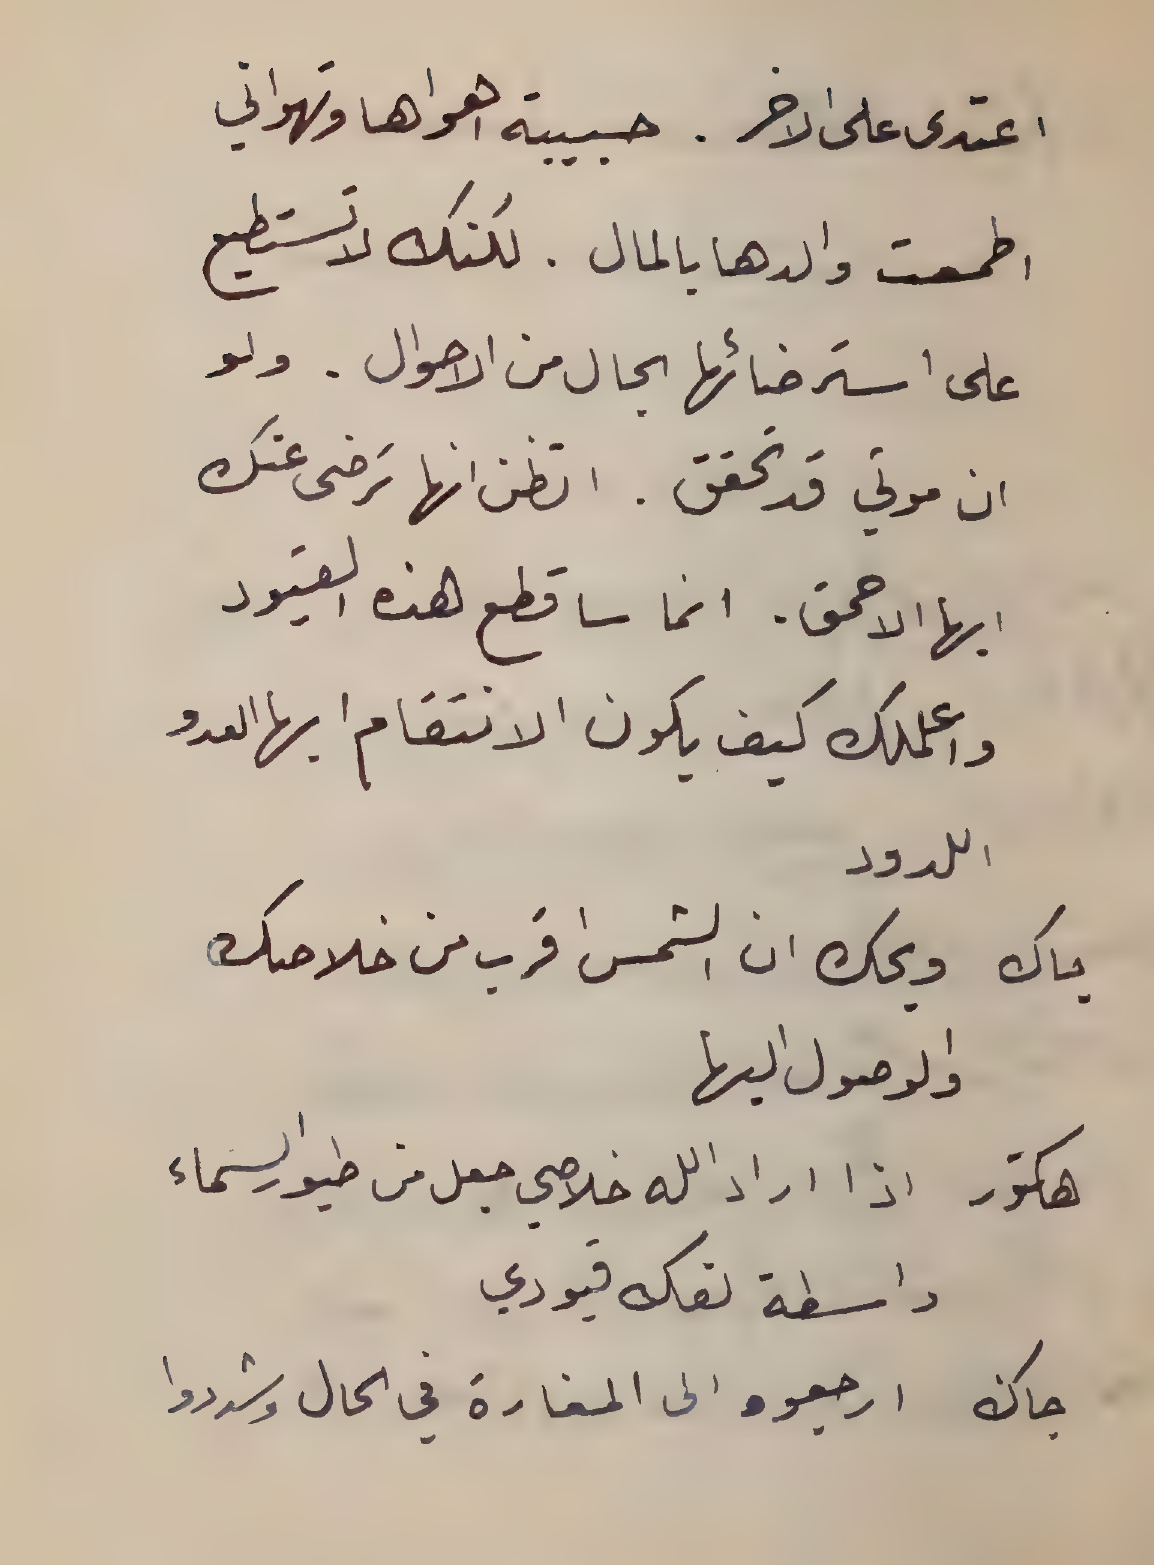 اعتدى على الاخر . حبيبة اهواها وتهواني
اطمعت والدها بالمال . لكنك لا تستطيع
على استرضائها بحال من الاحوال . ولو
ان موتي قد تحقق . اتظن انها ترضى عنك
ايها الاحمق . انما ساقطع هذه القيود
واعملك كيف يكون الانتقام ايها العدو
اللدود
جاك ويحك ان الشمس اقرب من خلاصك
والوصول اليها
هكتور اذا اراد الله خلاصي جعل من طيور السماء
واسطة لفك قيودي
جاك ارجعوه الى المغارة في الحال وشددوا